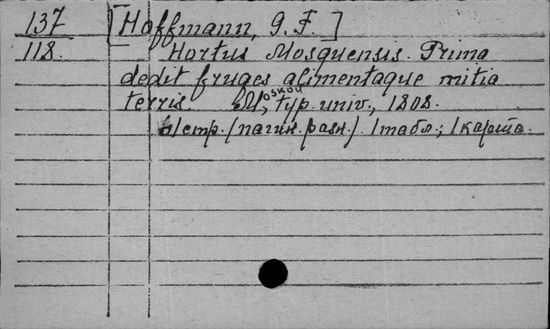 137 [Hoffmann, G. F.]
118. Hortus Mosquensis. Prima
dedit fruges alimentaque mitia
terris. Moskou, typ. univ., 1808.
стр. (пагин. разн.). 1 табл.; 1 карта.